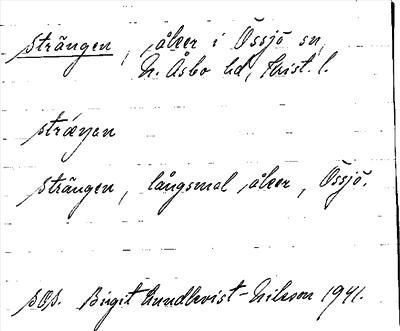 Strängen, åker i Össjö sn,
N. Åsbo hd, Krist. l.
stræŋən
Strängen, långsmal åker, Össjö.
Birgit Lundkvist-Nilsson 1941.